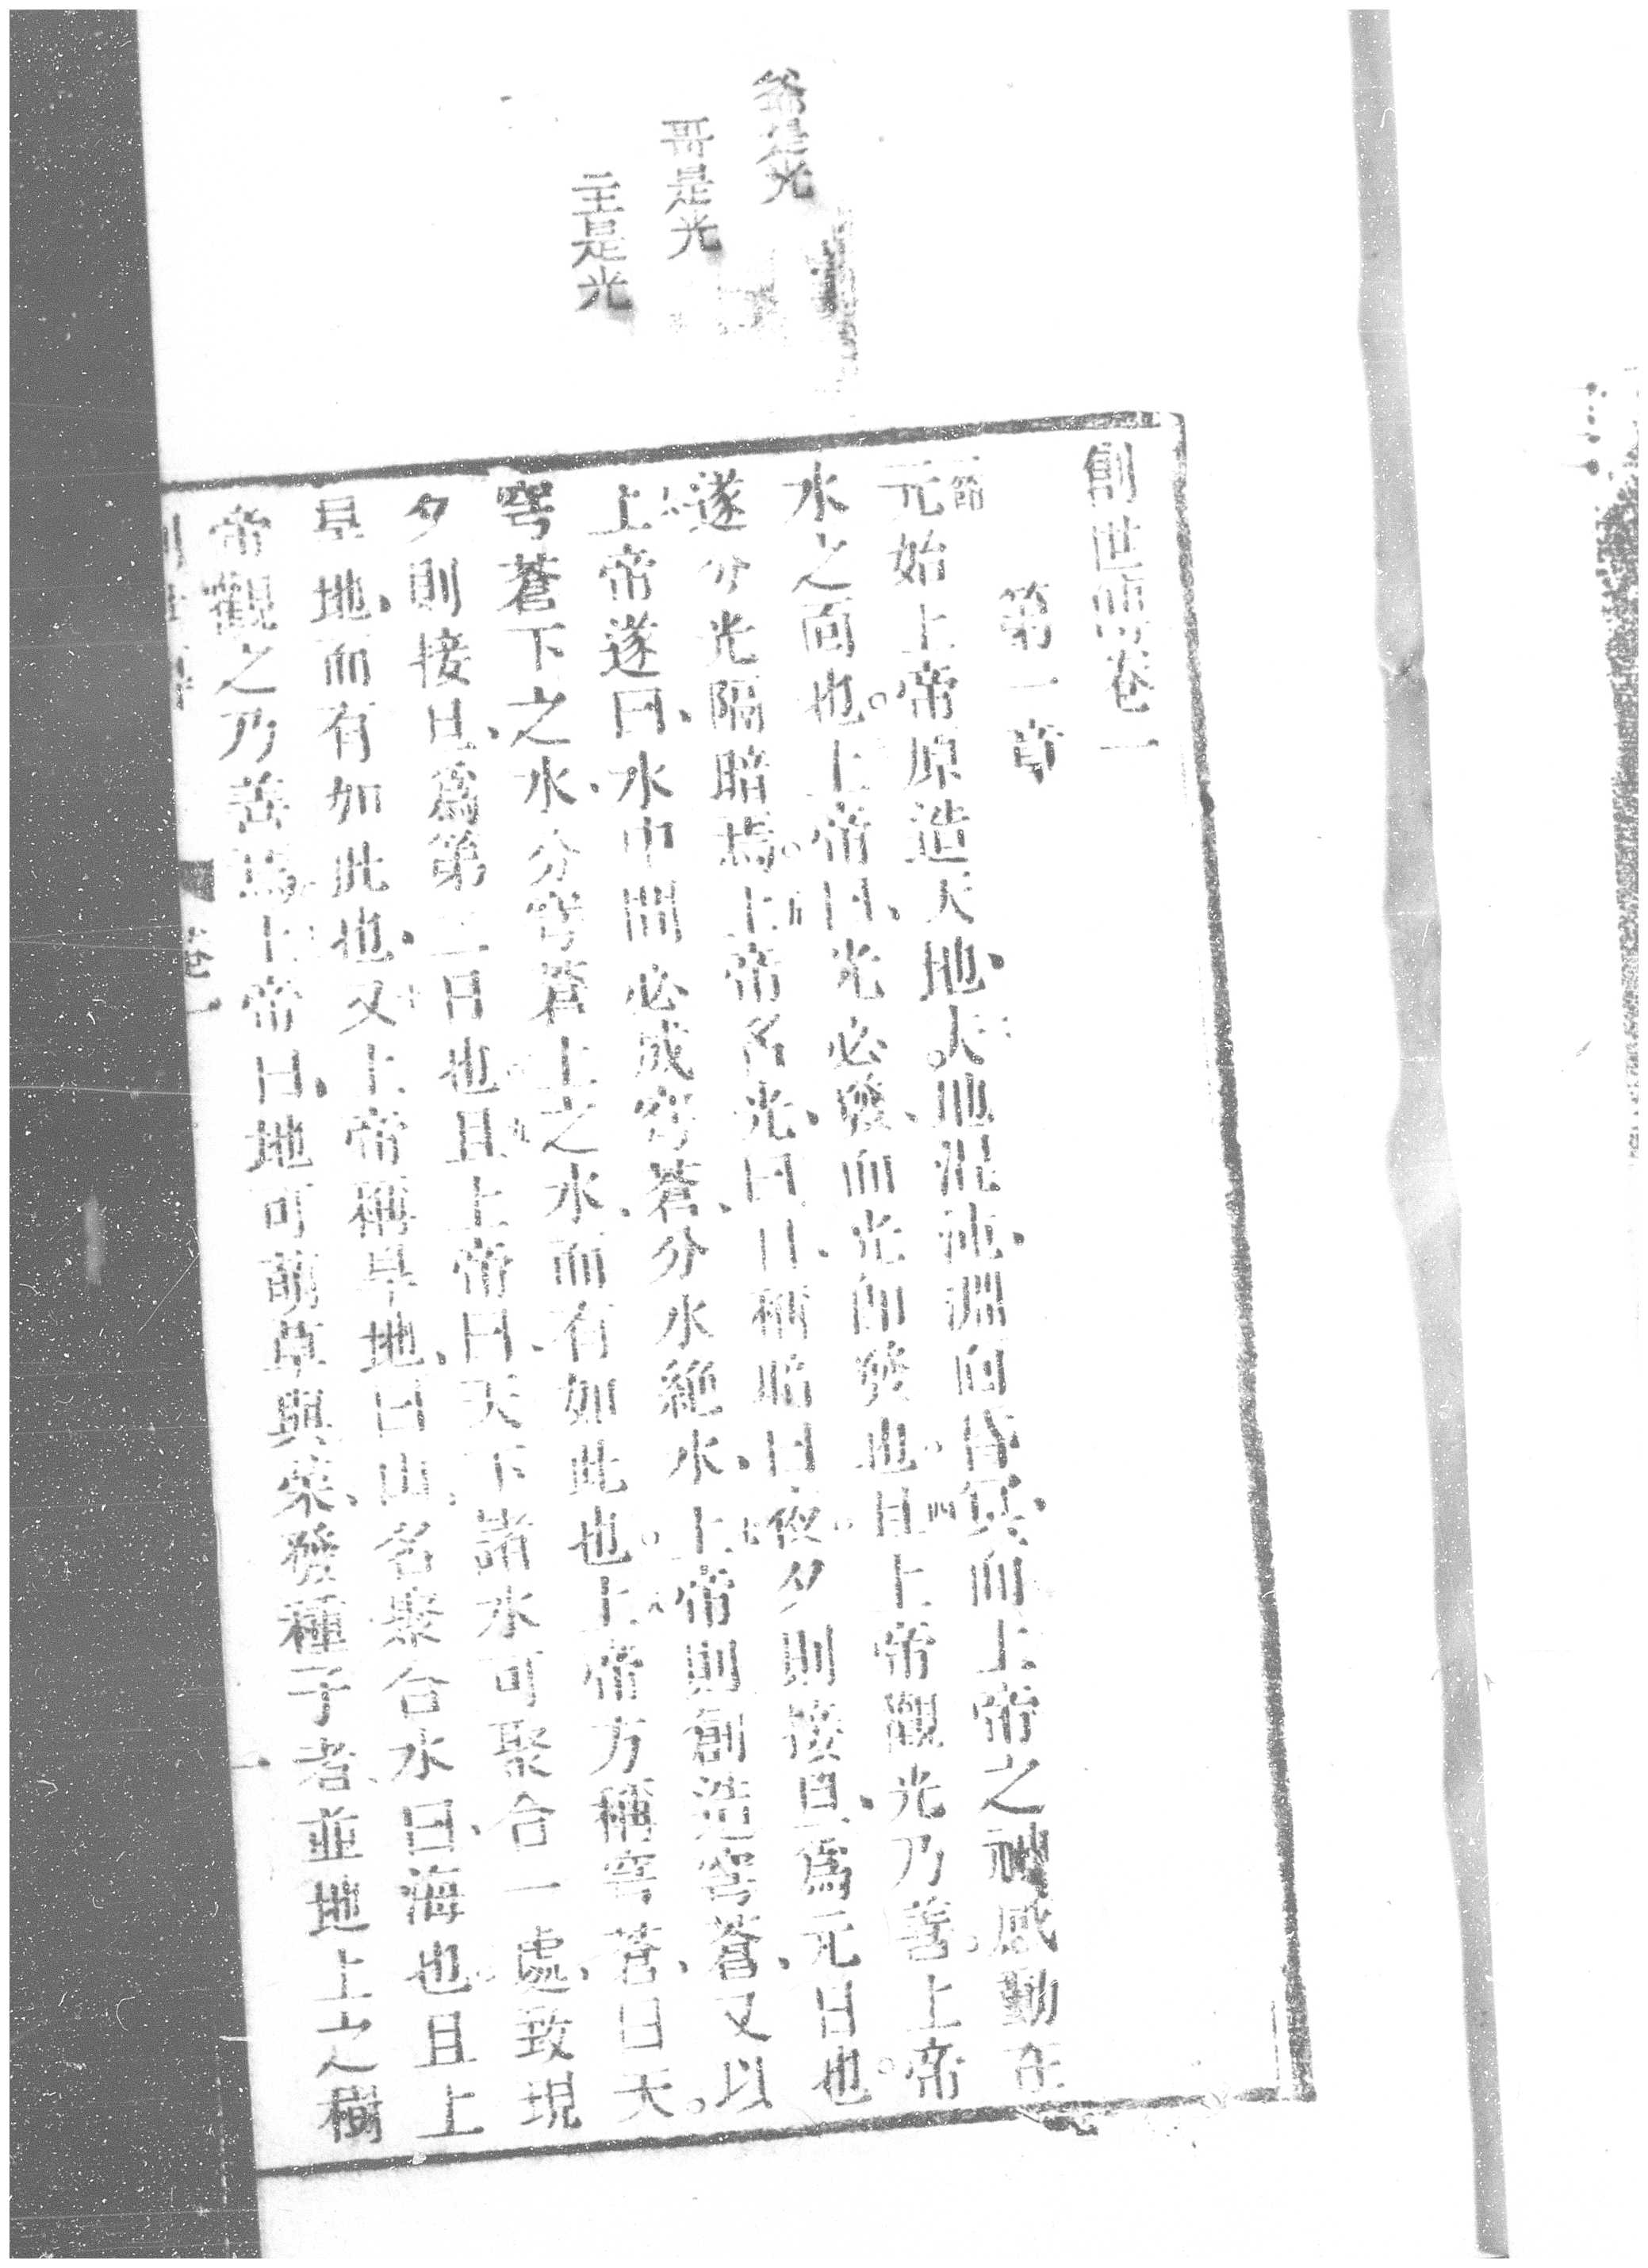 爺是光
哥是光
主是光
創世傳卷一
第一章
一節
元始上帝原造天地、天地混沌、淵面冥、而上帝之神感動在
水之面也。上帝曰、光必發、而光卽發也。且上帝觀光乃善、上帝
遂分光隔暗焉。上帝名光、曰日、稱暗曰夜。夕則接旦、爲元日也。
上帝遂曰、水中間必成穹蒼、分水絕水、上帝則創造穹蒼、又以
穹蒼下之水、分穹蒼上之水、而有如此也。上帝方稱穹蒼、曰天。
夕則接旦、爲第二日也、且上帝曰、天下諸水可聚合一處、致現
旱地、而有如此也、又上帝稱旱地、曰山、名聚合水、曰海也、且上
帝觀之乃善焉上帝曰、地可萌草與菜、發種子者、並地上之樹
一